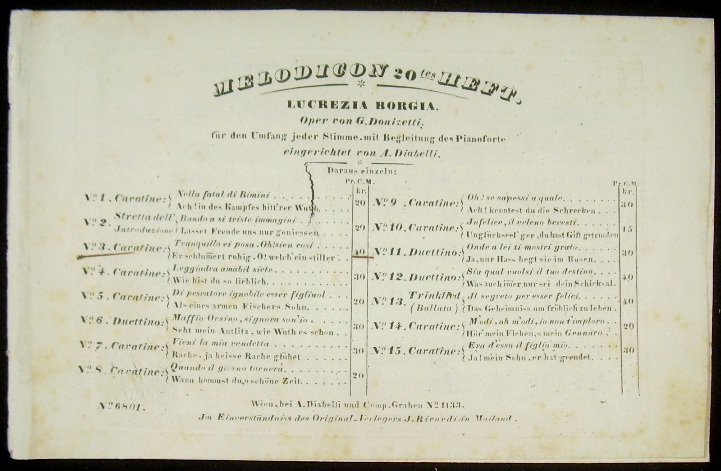 MELODICON 20tes HEFT.
LUCREZIA BORGIA.
Oper von G. Donizetti,
für den Umfang jeder Stimme, mit Begleitung des Pianoforte
eingerichtet von A. Diabelli,
Daraus einzeln:
Pr. C.M.
kr.
No 1. Cavatine: Nella fatal di Rimini
Ach! in des Kampfes bitt'rer Wuth 20
No 2. Stretta dell' Introduzione Bando a si triste immagini
Lasset Freude uns nur geniessen 20
No 3. Cavatine: Tranquillo ei posa. Oh! sien così
Er schlummert ruhig. O! welch' ein stiller 40
No 4. Cavatine: Leggiadra amabil siete
Wie bist du so lieblich 30
No 5. Cavatine: Di pescatore ignobile esser figliuol
Als eines armen Fischers Sohn 20
No 6. Duettino: Maffio Orsino, signora son'io
Seht mein Antlitz, wie Wuth es schon 30
No 7. Cavatine: Vieni la mia vendetta
Rache, ja heisse Rache glühet 30
No 8. Cavatine: Quando il giorno tornerà
Wann kommst du, o schöne Zeit 20
Pr. C.M.
kr.
No 9. Cavatine: Oh! se sapessi a quale
Ach! kenntest du die Schrecken 30
No 10. Cavatine: Infelice, il veleno bevesti
Unglücksel'ger, du hast Gift getrunken 15
No 11. Duettino: Onde a lei ti mostri grato
Ja, nur Hass hegt sie im Busen 30
No 12. Duettino: Sia qual vuolsi il tuo destino
Was auch immer nur sei dein Schicksal 40
No 13. Trinklied (Ballata) Il segreto per esser felici
Das Geheimniss um fröhlich zu leben 40
No 14. Cavatine: M'odi, ah m'odi, io non t'imploro
Hör' mein Flehen, o mein Gennaro 20
No 15. Cavatine: Era d'esso il figlio mio
Ja! mein Sohn, er hat geendet 30
No 6801.
Wien, bei A. Diabelli und Comp. Graben No 1133.
Im Einverständniss des Original-Verlegers J. Ricordi in Mailand.